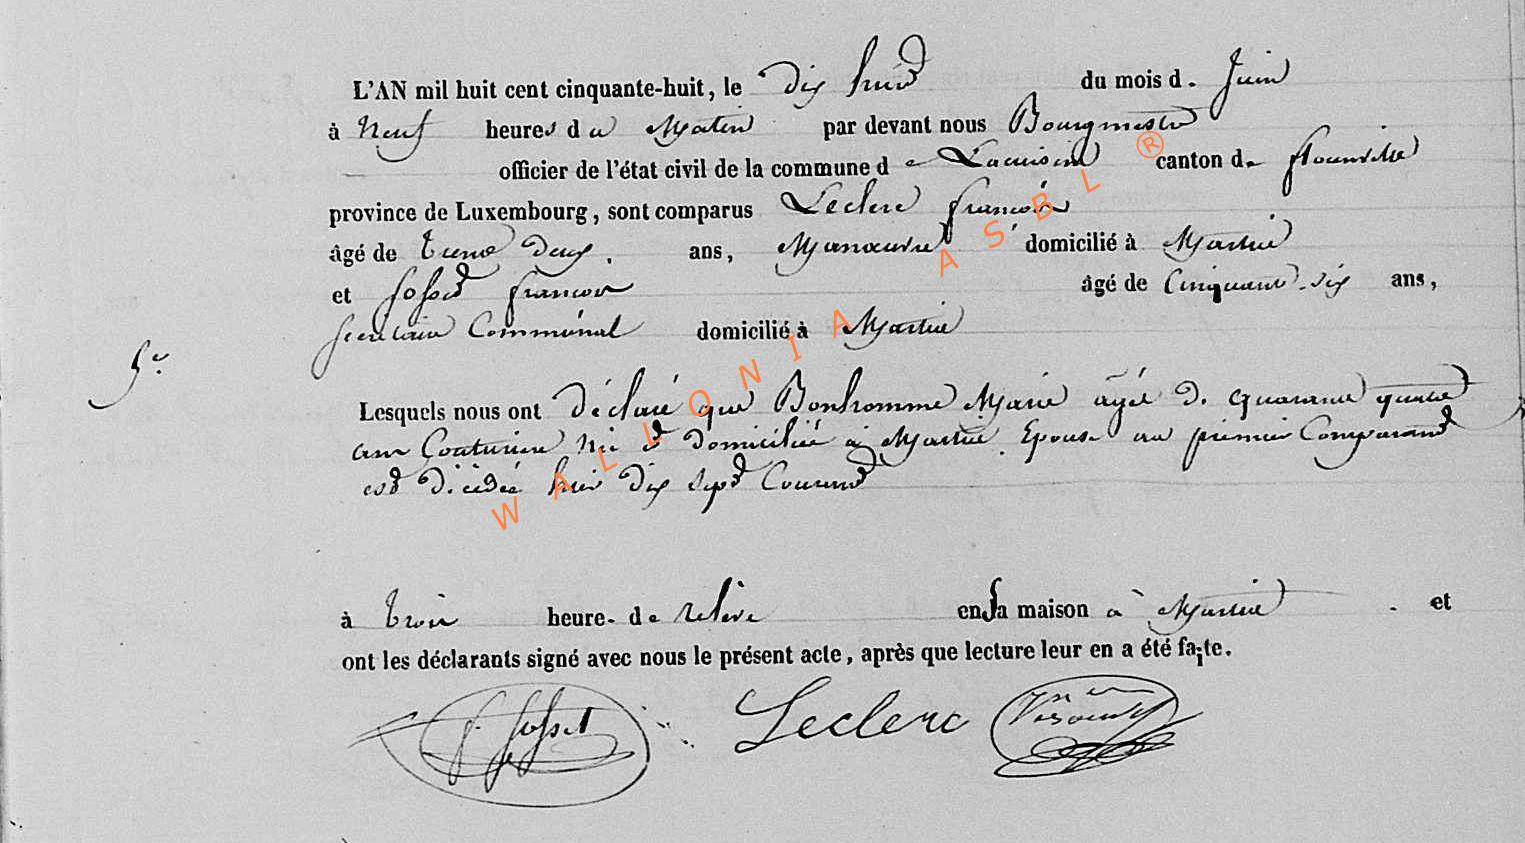 L'AN mil huit cent cinquante-huit, le Dix huit du mois d. Juin
à Neuf heures du Matin par devant nous Bourgmestre
officier de l'état civil de la commune de Lacuisine canton de florenville
province de Luxembourg, sont comparus Leclerc françois
âgé de trente Deux. ans, Manoeuvre domicilié à Martué
et fosset françois âgé de Cinquante-six ans,
secrétaire Communal domicilié à Martué
5e
Lesquels nous ont Déclaré que Bonhomme Marie agée de quarante quatre
ans Couturière née et Domiciliée à Martué Epouse au premier Comparant
est Décédée hier Dix sept Courant
à trois heure. de relevé en sa maison à Martué . et
ont les déclarants signé avec nous le présent acte, après que lecture leur en a été faite.
f. fosset Leclerc
WALLONIA ASBL ®